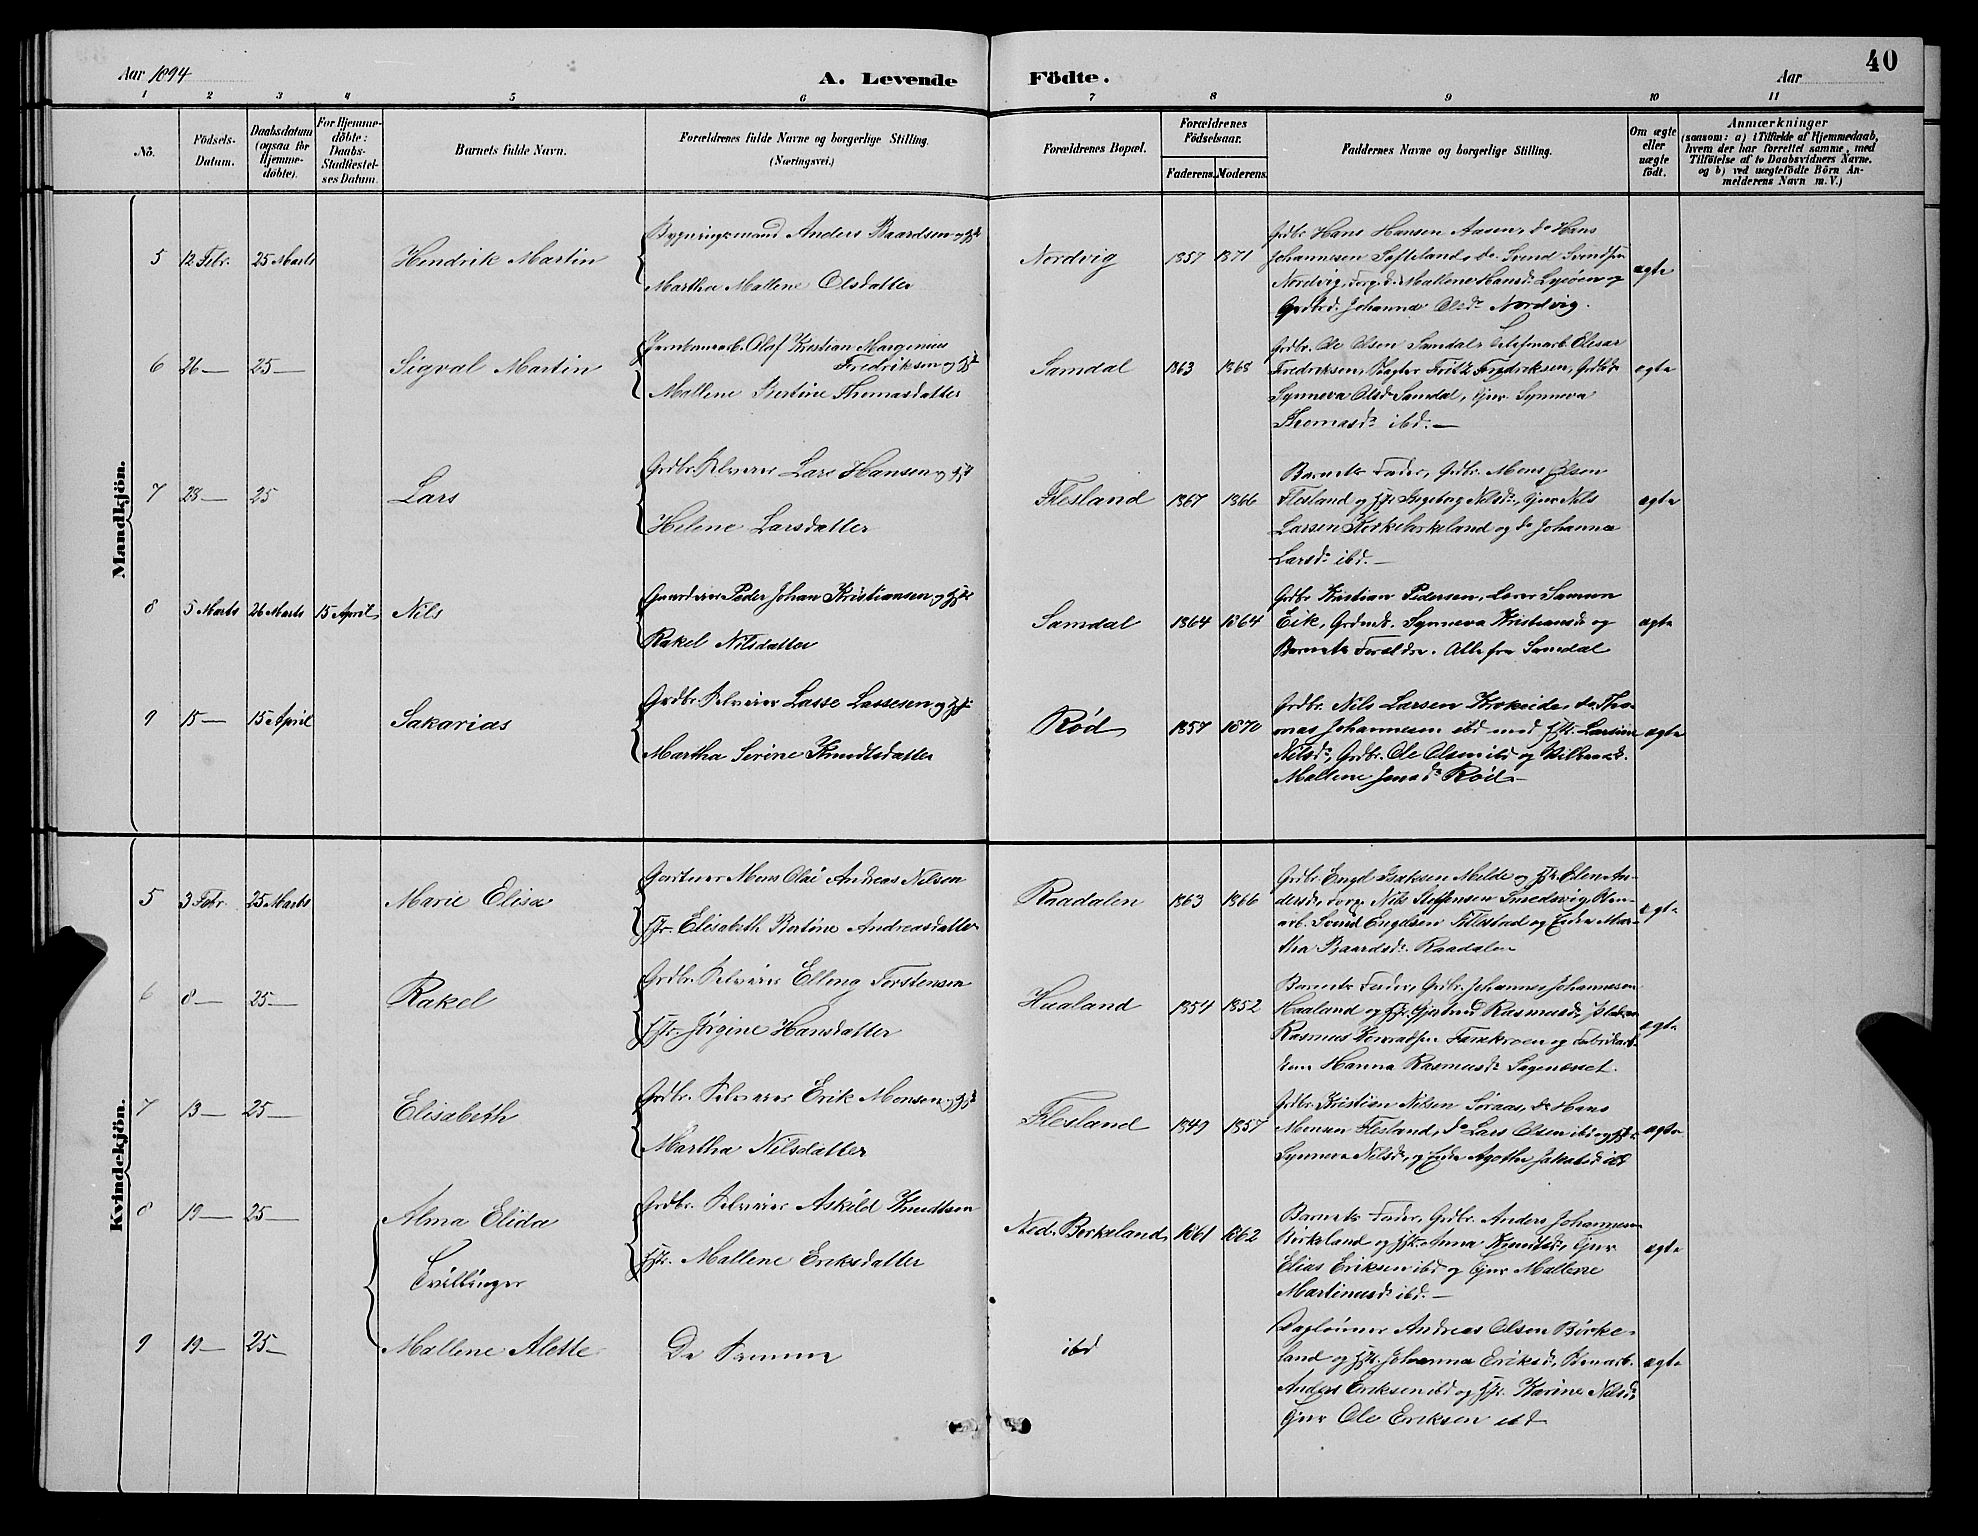 Aar 1894
A. Levende
Födte.
Aar
40
1 2 3 4 5 6 7 8 9 10 11
No.
Födsels-
Datum.
Daabsdatum
(ogsaa for
Hjemme-
döbte).
For Hjemme-
döbte:
Daabs-
Stadfæstel-
ses Datum.
Barnets fulde Navn.
Forældrenes fulde Navne og borgerlige Stilling.
(Næringsvei.)
Forældrenes Bopæl.
Forældrenes
Födselsaar.
Faderens. Moderens.
Faddernes Navne og borgerlige Stilling.
Om ægte
eller
uægte
födt.
Anmærkninger
(saasom: a) i Tilfælde af Hjemmedaab,
hvem der har forrettet samme, med
Tilföielse af to Daabsvidners Navne.
og b) ved uægtefödte Börn An-
melderens Navn m. V.)
Mandkjön.
5 12 Febr. 25 Marts Hendrik Martin
Bygningsmand Anders Baardsen og Hst
Martha Mallene Olsdatter
Nordvig 1857 1871
Grdbr. Hans Hansen Aasen, do Hans
Johannesen Søfteland, do Svend Svendsen
Nordvig, Forp.d. Mallene Hansd. Lysøen og
Grdbrd. Johanna Olsdr Nordvig.
ægte
6 26 — 25 — Sigval Martin
Olaf Kristian Marginius
Fredriksen og Hst
Mallene Bertine Thomasdatter
Samdal 1863 1868
Grdbr. Ole Olsen Samdal, Elesar
Fredriksen, Fritz Fredriksen, Grdbr
Synneva Olsdr Samdal, Gjør Synneva
Thomasdr ibd. —
ægte
7 23 — 25 Lars
Grdbr. Selveier Lars Hansen og Hst
Helene Larsdatter
Flesland 1867 1866
Barnets Fader, Grdbr. Mons Olsen
Flesland og Hst. Ingeborg Nilsdr, Gjør Nils
Larsen Kirkebirkeland og do Johanna
Larsdr ibd. —
ægte
8 5 Marts 26 Marts 15 April Nils
Peder Johan Kristiansen og Hst
Rakel Nilsdatter
Samdal 1864 1864
Grdbr. Kristian Pedersen, Lærer Samson
Eik, Synneva Kristiansdr og
Barnets Forældre. Alle fra Samdal
ægte
9 15 — 15 April Sakarias
Grdbr. Selveier Lasse Lassesen og Hst
Martha Serine Knudtsdatter
Rød 1857 1870
Grdbr. Nils Larsen Krokeide, do Tho-
mas Johannesen ibd med Hst. Larsine
Nilsdr, Grdbr. Ole Olsen ibd og
Mallene Jonsdr Rød —
ægte
Kvindekjön.
5 3 Febr 25 Marts Marie Elisa
Gartner Mons Olai Andreas Nilsen
Hst. Elisabeth Bertine Andreasdatter
Raadalen 1863 1866
Grdbr. Engel Isaksen Melde og Hst. Elen An-
dersdr, Forp. Nils Steffensen Smedsvig,
arb. Svend Engelsen Fillestad og Enke Mar-
tha Baardsdr Raadalen
ægte
6 8 — 25 — Rakel
Grdbr. Selveier Elling Torstensen
Hst. Jørgine Hansdatter
Haaland 1854 1852
Barnets Fader, Grdbr. Johannes Johannesen
Haaland og Hst. Gjertrud Rasmusdr,
Rasmus Konradsen Fanekroen og Fabrikarb.
Hanna Rasmusdr Sagenæset.
ægte
7 13 — 25 — Elisabeth
Grdbr. Selveier Erik Monsen og Hst
Martha Nilsdatter
Flesland 1849 1857
Grdbr. Kristian Nilsen Søraas, do Hans
Monsen Flesland, do Lars Olsen ibd og Hst
Synneva Nilsdr, og Enke Agothe Jakobsd ibd
ægte
8 19 — 25 — Alma Elida
Tvillinger
Grdbr. Selveier Askild Knudtsen
Hst. Mallene Eriksdatter
Ned. Birkeland 1861 1862
Barnets Fader, Grdbr. Anders Johannesen
Birkeland og Hst. Anna Knutsdr, Gjør
Elias Eriksen ibd og Gjør Mallene
Martinusdr ibd. —
ægte
9 19 — 25 — Mallene Alette
De Samme
ibd
Dagleiner Andreas Olsen Birke-
land og Hst. Johanna Eriksdr,
Anders Eriksen ibd og Hst. Karine Nilsdr
Gjør Ole Eriksen ibd
ægte